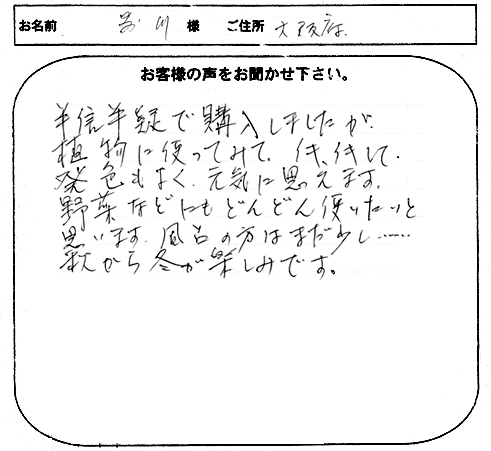 お名前 川 様 ご住所 大阪府
お客様の声をお聞かせ下さい。
半信半疑で購入しましたが、
植物に使ってみて、イキ、イキして、
発色もよく、元気に思えます。
野菜などにもどんどん使いたいと
思います。風呂の方はまだ少し……
秋から冬が楽しみです。